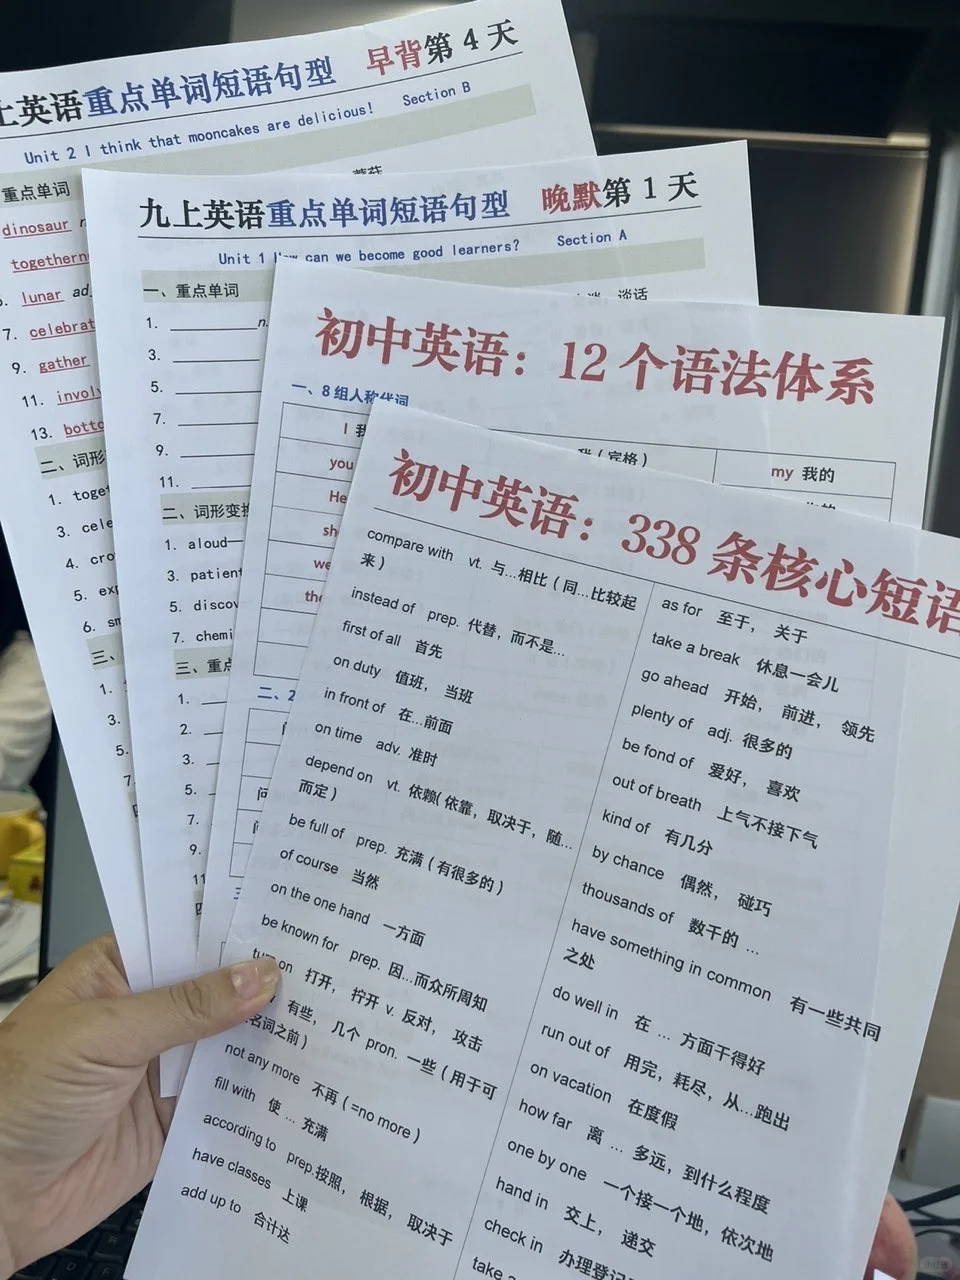 上英语重点单词短语句型 早背第 4 天
Unit 2 I think that mooncakes are delicious! Section B
重点单词
dinosaur
lunar adj
7. celebrat
9. gather
11. involv
13. botto
二、词形
1. toget
3. cele
4. cro
5. exp
6. sm
三、
1.
3.
5.
7
九上英语重点单词短语句型 晚默第 1 天
Unit 1 How can we become good learners? Section A
一、重点单词
谈话
1. n.
3.
5.
7.
9.
11.
二、词形变换
1. aloud—
3. patient
5. discov
7. chemi
三、重点
1.
2.
3.
5.
7.
9.
11
四
初中英语：12 个语法体系
一、8 组人称代词
I 我
我（宾格）
my 我的
you
He
sh
we
the
二、2
初中英语：338 条核心短语
compare with vt. 与…相比（同…比较起
来）
instead of prep. 代替，而不是…
first of all 首先
on duty 值班，当班
in front of 在…前面
on time adv. 准时
depend on vt. 依赖（依靠，取决于，随…
而定）
be full of prep. 充满（有很多的）
of course 当然
on the one hand 一方面
be known for prep. 因…而众所周知
turn on 打开，拧开 v. 反对，攻击
有些，几个 pron. 一些（用于可
名词之前）
not any more 不再（=no more）
fill with 使 … 充满
according to prep.按照，根据，取决于
have classes 上课
add up to 合计达
as for 至于，关于
take a break 休息一会儿
go ahead 开始，前进，领先
plenty of adj. 很多的
be fond of 爱好，喜欢
out of breath 上气不接下气
kind of 有几分
by chance 偶然，碰巧
thousands of 数千的 …
have something in common 有一些共同
之处
do well in 在 … 方面干得好
run out of 用完，耗尽，从…跑出
on vacation 在度假
how far 离 … 多远，到什么程度
one by one 一个接一个地，依次地
hand in 交上，递交
check in 办理登记
take a